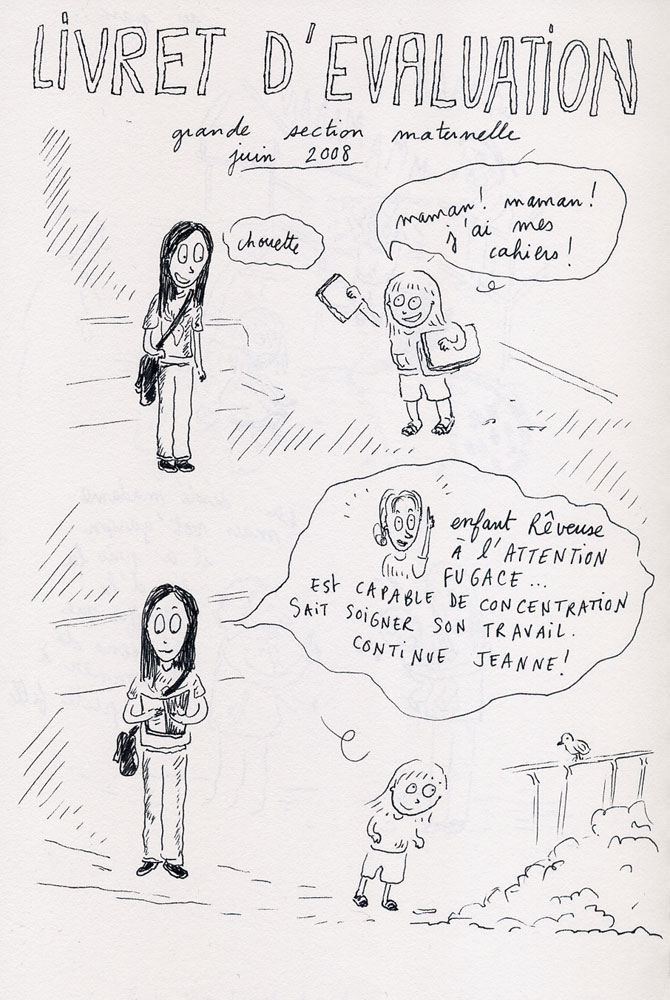 LiVRET D'EVALUATiON
grande section maternelle
juin 2008
chouette
maman! maman!
j'ai mes
cahiers!
enfant Rêveuse
À l'ATTENTiON
FUGACE...
EST CAPABLE DE CONCENTRATiON
SAiT SOiGNER SON TRAVAiL.
CONTiNUE JEANNE!